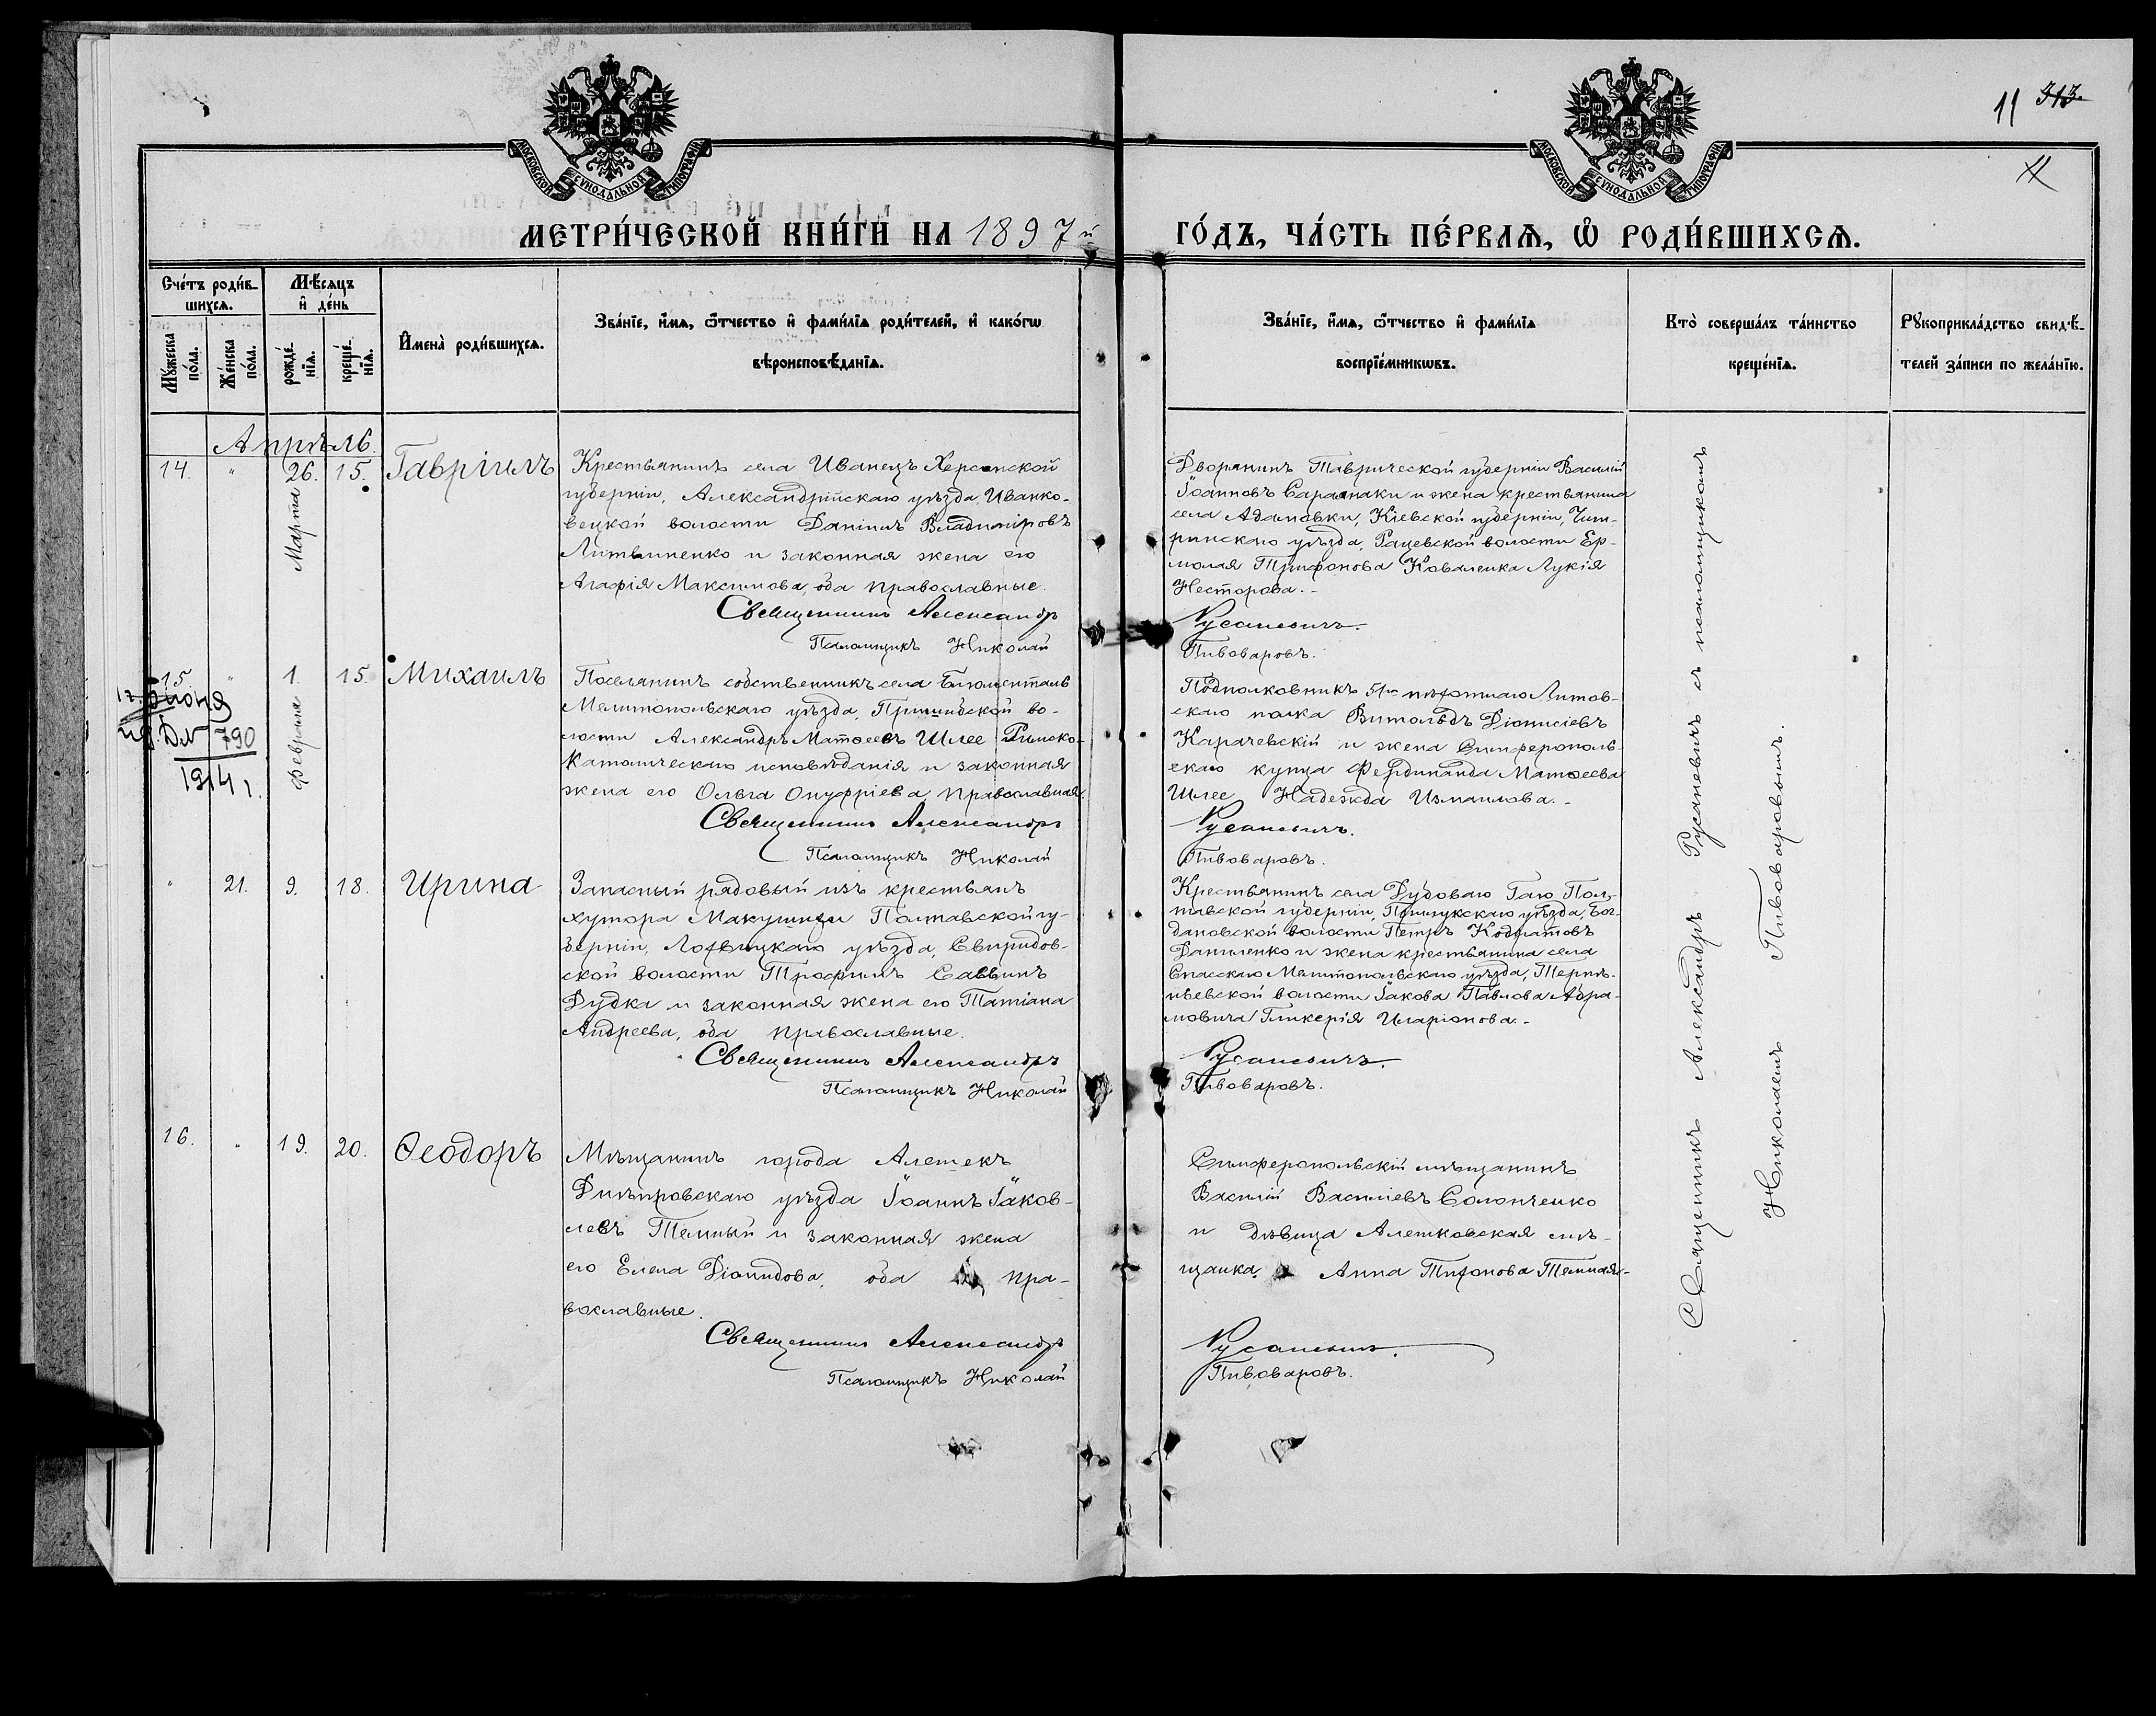 11 313.
МОСКОВСКОЙ СѴНОДАЛЬНОЙ ТИПОГРАФІИ
МОСКОВСКОЙ СѴНОДАЛЬНОЙ ТИПОГРАФІИ
МЕТРИ́ЧЕСКОЙ КНИ́ГИ НА 1897й
ГО́ДЪ, ЧА́СТЬ ПЕ́РВАѦ, Ѡ҆ РОДИ́ВШИХСѦ.
Сче́тъ роди́в-
шихсѧ.
Мѣ́сѧцъ
и҆ де́нь
Мꙋ́жеска по́ла.
Же́нска по́ла.
рожде́-нїѧ.
креще́-нїѧ.
И҆мена̀ роди́вшихсѧ.
Зва́нїе, и҆́мѧ, ѻ҆́тчество и҆ фами́лїѧ роди́телей, и҆ како́гѡ
вѣроисповѣ́данїѧ.
Зва́нїе, и҆́мѧ, ѻ҆́тчество и҆ фами́лїѧ
воспрїе́мникѡвъ.
Кто̀ соверша́лъ та́инство
креще́нїѧ.
Рꙋкоприкла́дство свидѣ́-
телей за́писи по жела́нїю.
Апрѣль.
14. " 26. 15. Гавріилъ
Марта
Крестьянинъ села Иванецъ Херсонской
губерніи, Александрійскаго уѣзда, Иванко-
вецкой волости Даніилъ Владиміровъ
Литвиненко и законная жена его
Агафія Максимова, оба православные.
Священникъ Александръ
Псаломщикъ Николай
Дворянинъ Таврической губерніи Василій
Іоанновъ Сарданаки и жена крестьянина
села Адамовки, Кіевской губерніи, Чиги-
ринскаго уѣзда, Рацевской волости Ер-
молая Трифонова Коваленка Лукія
Несторова.-
Русаневичъ.
Пивоваровъ.
15. " 1. 15. Михаилъ
Февраля
12 Июня
№ 790
1914 г.
Поселянинъ собственникъ села Блюменталь
Мелитопольскаго уѣзда, Пришибской во-
лости Александръ Матвеевъ Шлее Римско-
Католическаго исповѣданія и законная
жена его Ольга Онуфріева, православная.
Священникъ Александръ
Псаломщикъ Николай
Подполковникъ 51го пѣхотнаго Литов-
скаго полка Витольдъ Діонисіевъ
Карачевскій и жена Симферополь-
скаго купца Фердинанда Матвеева
Шлее Надежда Измаилова.-
Русаневичъ.
Пивоваровъ.
" 21. 9. 18. Ирина
Запасный рядовый изъ крестьянъ
хутора Макушихи Полтавской гу-
берніи, Лохвицкаго уѣзда, Свиридов-
ской волости Трофимъ Саввинъ
Дудка и законная жена его Татіана
Андреева, оба православные.
Священникъ Александръ
Псаломщикъ Николай
Крестьянинъ села Дубоваго Гаю Пол-
тавской губерніи, Прилукскаго уѣзда, Бог-
дановской волости Петръ Кодратовъ
Даниленко и жена крестьянина села
Спасскаго Мелитопольскаго уѣзда, Терпѣ-
ньевской волости Іакова Павлова Абра-
мовича Гликерія Иларіонова.-
Русаневичъ.
Пивоваровъ.
16. " 19. 20. Ѳеодоръ
Мѣщанинъ города Алешекъ
Днѣпровскаго уѣзда Іоаннъ Іаков-
левъ Темный и законная жена
его Елена Діомидова, оба пра-
вославные.
Священникъ Александръ
Псаломщикъ Николай
Симферопольскій мѣщанинъ
Василій Василіевъ Солонченко
и дѣвица Алешковская мѣ-
щанка Анна Тихонова Темная.-
Русаневичъ.
Пивоваровъ.
Священникъ Александръ Русаневичъ съ псаломщикомъ
Николаемъ Пивоваровымъ.